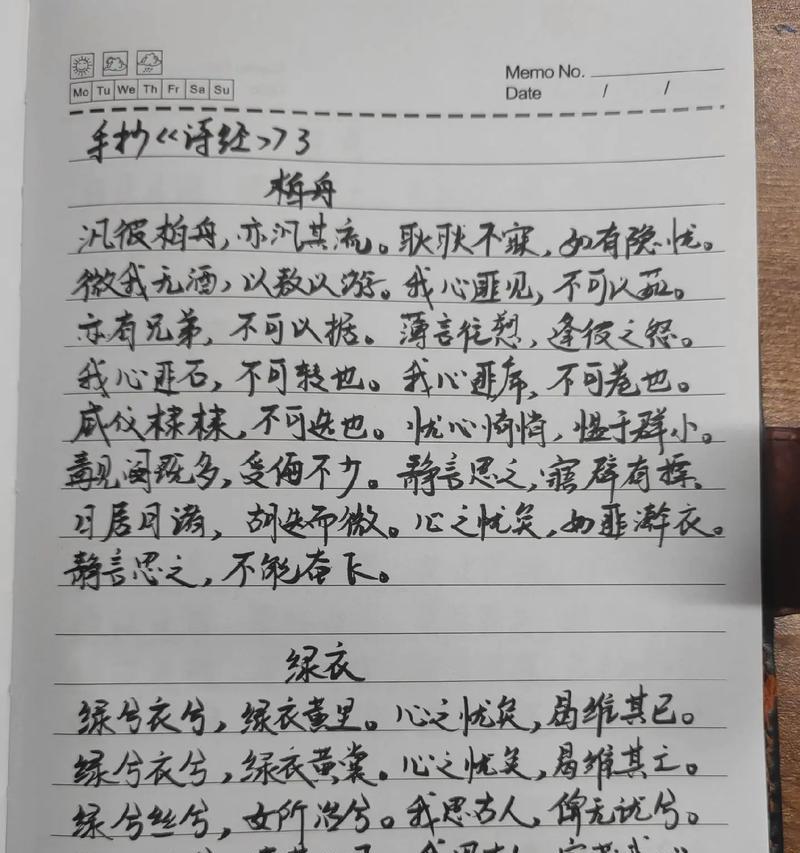 Memo No.
Mo Tu We Th Fr Sa Su
Date / /
手抄《诗经》73
柏舟
汎彼柏舟，亦汎其流。耿耿不寐，如有隐忧。
微我无酒，以敖以游。我心匪见，不可以茹。
亦有兄弟，不可以据。薄言往愬，逢彼之怒。
我心匪石，不可转也。我心匪席，不可卷也。
威仪棣棣，不可选也。忧心悄悄，愠于群小。
觏闵既多，受侮不少。静言思之，寤辟有摽。
日居月诸，胡迭而微。心之忧矣，如匪澣衣。
静言思之，不能奋飞。
绿衣
绿兮衣兮，绿衣黄里。心之忧矣，曷维其已。
绿兮衣兮，绿衣黄裳。心之忧矣，曷维其亡。
绿兮丝兮，女所治兮。我思古人，俾无訧兮。